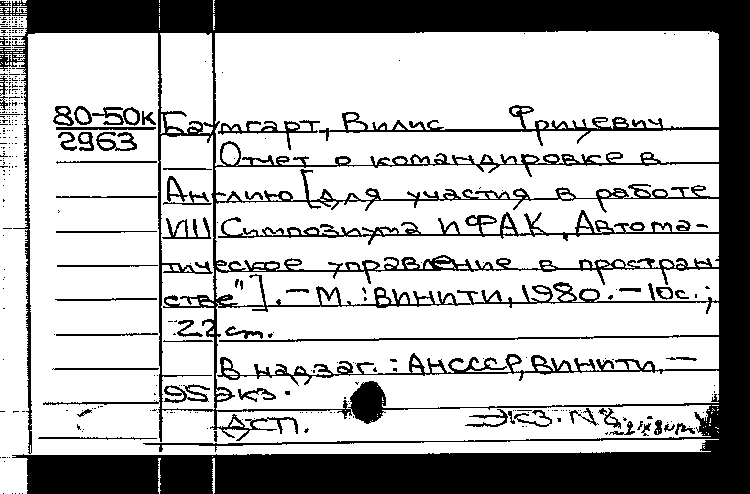 80-50к
2963
Баумгарт, Вилис Фрицевич
Отчет о командировке в
Англию [для участия в работе
VIII Симпозиума ИФАК „Автома-
тическое управление в простран
стве"]. – М. : ВИНИТИ, 1980. – 10с. ;
22 cm.
В надзаг. : АНСССР, ВИНИТИ. –
95экз.
ДСП. Экз. N8.